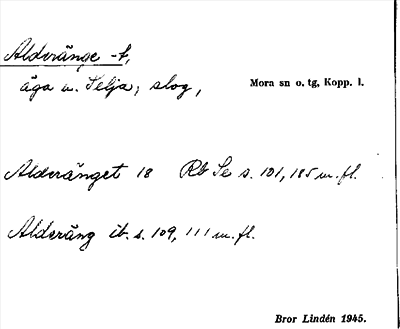 Aldränge -t,
äga u. Selja; slog,
Mora sn o. tg, Kopp. l.
Alderänget 18 Rb Se s. 101, 185 m. fl.
Alderäng ib. s. 109, 111 m. fl.
Bror Lindén 1945.